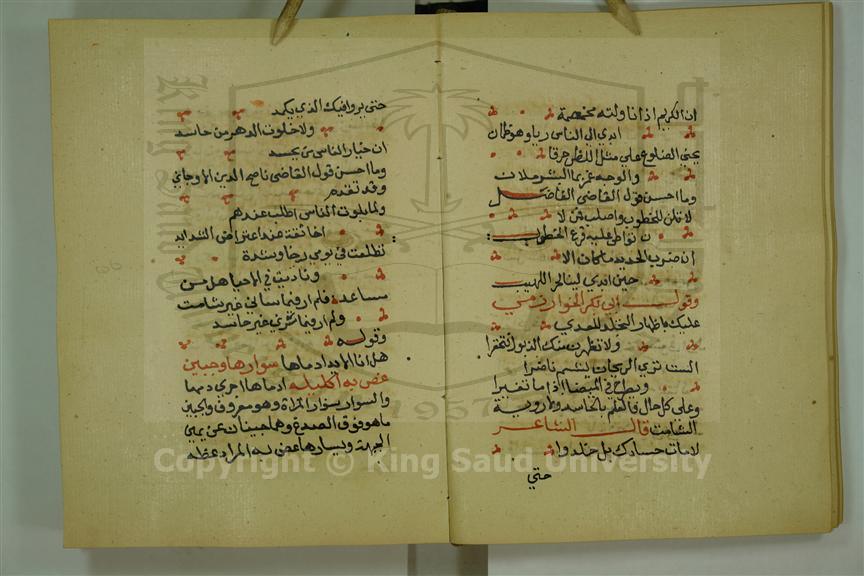 ان الكريم اذا ناولته مخمصة
ابدى الى الناس ريا وهو ظمان
يحنى الضلوع على مثل اللظى حرقا
والوجه غمر بالبشر ملان
وما احسن قول القاضي الفاضل
لا تلن للخطوب واصلب فمن لا
ن تواطى عليه قرع الخطوب
ان ضرب الحديد ما كان الا
حين ابدى لينا لحر اللهيب
وقول ابي بكر الخوارزمي
عليك باظهار التجلد للعدي
ولا تظهرن منك الذبول فتحقرا
الست تري الريحان يشتم ناضرا
ويطرح في الميضا اذا ما تغيرا
وعلى كل حال فالتكلم بالحاسد وله روية
الشامت قال الشاعر
لا مات حسادك بل خلدوا
حتي
حتى يروا فيك الذي يكمد
ولا خلوت الدهر من حاسد
ان خيار الناس من يحسد
وما احسن قول القاضي ناصح الدين الارجاني
وقد تقدم
ولما بلوت الناس اطلب عندهم
اخا ثقة عند اعتراض الشدايد
تطلعت في يومي رخا وشدة
وناديت في الاحيا هل من
مساعد فلم ار فيما ساني غير شامت
ولم ار فيما سرني غير حاسد
وقوله
هل انا الا يد ادماها سوارها وجبين
عض به اكليله ادماها اجرى دمها
والسوار سوار المراة وهو معروف والجبين
ما هو فوق الصدغ وهما جبينان عن يمين
الجبهة ويسارها عض به المراد عظه
Copyright © King Saud University
1957